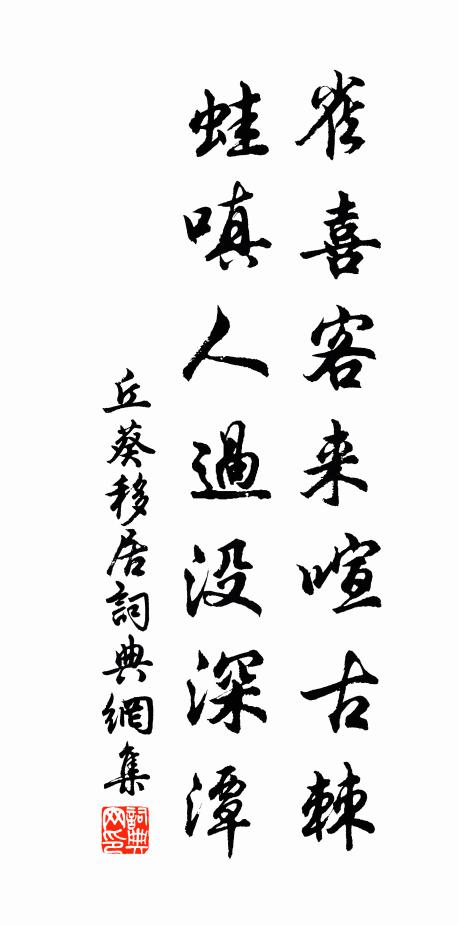 雀喜客来喧古棘
蛙嗔人過没深潭
丘葵移居詞典網集
詞典
网印